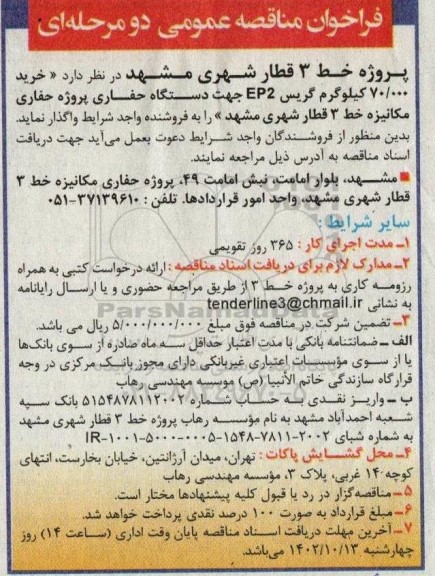 فراخوان مناقصه عمومی دو مرحله‌ای
پروژه خط ۳ قطار شهری مشهد در نظر دارد « خرید
۷۰/۰۰۰ کیلوگرم گریس EP2 جهت دستگاه حفاری پروژه حفاری
مکانیزه خط ۳ قطار شهری مشهد » را به فروشنده واجد شرایط واگذار نماید.
بدین منظور از فروشندگان واجد شرایط دعوت بعمل می‌آید جهت دریافت
اسناد مناقصه به آدرس ذیل مراجعه نمایند.
■ مشهد، بلوار امامت، نبش امامت ۴۹، پروژه حفاری مکانیزه خط ۳
قطار شهری مشهد، واحد امور قراردادها. تلفن : ۳۷۱۳۹۶۱۰-۰۵۱
سایر شرایط :
۱ـ مدت اجرای کار : ۳۶۵ روز تقویمی
۲ـ مدارک لازم برای دریافت اسناد مناقصه : ارائه درخواست کتبی به همراه
رزومه کاری به پروژه خط ۳ از طریق مراجعه حضوری و یا ارسال رایانامه
به نشانی tenderline3@chmail.ir
۳ـ تضمین شرکت در مناقصه فوق مبلغ ۵/۰۰۰/۰۰۰/۰۰۰ ریال می باشد.
الف ـ ضمانتنامه بانکی با مدت اعتبار حداقل سه ماه صادره از سوی بانک‌ها
یا از سوی مؤسسات اعتباری غیربانکی دارای مجوز بانک مرکزی در وجه
قرارگاه سازندگی خاتم الأنبیا (ص) موسسه مهندسی رهاب
ب ـ واریز نقدی به حساب شماره ۵۱۵۴۸۷۸۱۱۲۰۰۲ بانک سپه
شعبه احمدآباد مشهد به نام مؤسسه رهاب پروژه خط ۳ قطار شهری مشهد
به شماره شبای IR-۱۰۰۱-۵۰۰۰-۰۰۰۵-۱۵۴۸-۷۸۱۱-۲۰۰۲
۴ـ محل گشایش پاکات : تهران، میدان آرژانتین، خیابان بخارست، انتهای
کوچه ۱۴ غربی، پلاک ۳، مؤسسه مهندسی رهاب
۵ـ مناقصه‌گزار در رد یا قبول کلیه پیشنهادها مختار است.
۶ـ مبلغ قرارداد به صورت ۱۰۰ درصد نقدی پرداخت خواهد شد.
۷ـ آخرین مهلت دریافت اسناد مناقصه پایان وقت اداری (ساعت ۱۴) روز
چهارشنبه ۱۴۰۲/۱۰/۱۳ می‌باشد.
ParsNamadData